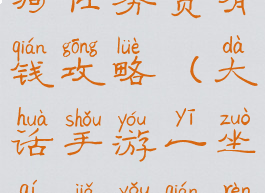 任务
qián gōng lüè dà
钱攻略（大
huà shǒu yóu yī zuò
话手游一坐